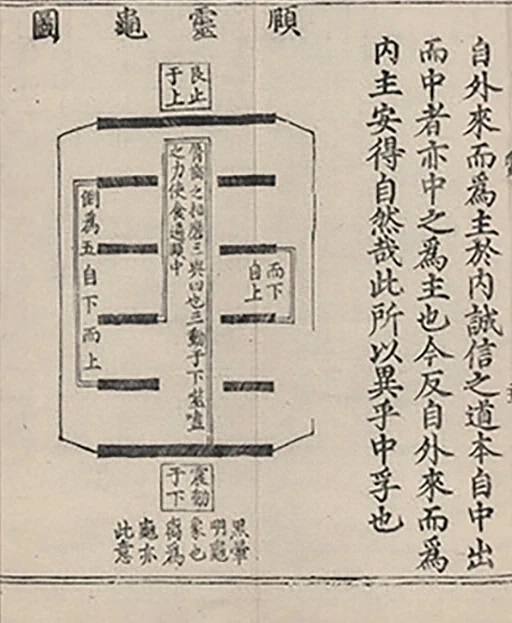 自外來而爲主於內誠信之道本自中出
而中者亦中之爲主也今反自外來而爲
內主安得自然哉此所以異乎中孚也
頤靈龜圖
艮止
于上
而下
自上
齒之相磨三與四也三動于下能嗑
之力使食過中
倒爲五自下而上
震動
于下
黑暈
明龜
象也
爲
龜亦
此意